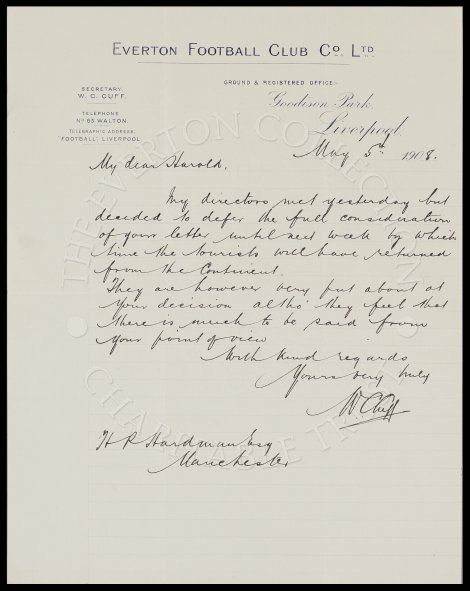 EVERTON FOOTBALL CLUB CO. LTD
GROUND & REGISTERED OFFICE:-
SECRETARY.
W. C. CUFF.
Goodison Park,
TELEPHONE
No 63 WALTON.
Liverpool,
TELEGRAPHIC ADDRESS,
"FOOTBALL" LIVERPOOL
May 5th 1908.
My dear Harold,
My directors met yesterday but
decided to defer the full consideration
of your letter until next week by which
time the tourists will have returned
from the Continent.
They are however very put about at
your decision altho' they feel that
there is much to be said from
your point of view
With kind regards
Yours very truly
W. C. Cuff
H P Hardman Esq
Manchester
THE EVERTON COLLECTION
CHARITABLE TRUST